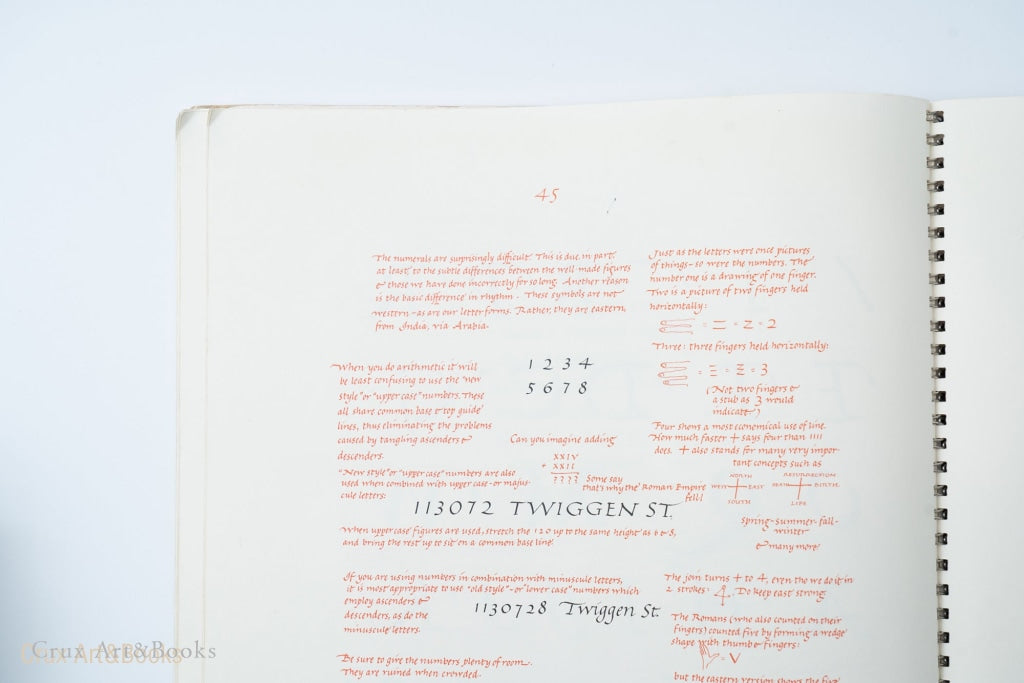 45
The numerals are surprisingly difficult. This is due, in part,
at least, to the subtle differences between the well made figures
& those we have done incorrectly for so long. Another reason
is the basic difference in rhythm. These symbols are not
western - as are our letter forms. Rather, they are eastern,
from India, via Arabia.
When you do arithmetic it will
be least confusing to use the "new
style" or "upper case" numbers. These
all share common base & top guide
lines, thus eliminating the problems
caused by tangling ascenders &
descenders.
1 2 3 4
5 6 7 8
Can you imagine adding
XXIV
+ XXII
????
Some say
that's why the Roman Empire
fell!
"New style" or "upper case" numbers are also
used when combined with upper case - or majus-
cule letters:
113072 TWIGGEN ST.
When upper case figures are used, stretch the 1 2 0 up to the same height as 6 & 8,
and bring the rest up to sit on a common base line.
If you are using numbers in combination with minuscule letters,
it is most appropriate to use "old style" - or lower case" numbers which
employ ascenders &
descenders, as do the
minuscule letters.
1130728 Twiggen St.
Be sure to give the numbers plenty of room.
They are ruined when crowded.
Just as the letters were once pictures
of things - so were the numbers. The
number one is a drawing of one finger.
Two is a picture of two fingers held
horizontally:
= = = Z = 2
Three: three fingers held horizontally:
= Ξ = Ξ = 3
(Not two fingers &
a stub as 3 would
indicate)
Four shows a most economical use of line.
How much faster + says four than 1111
does. + also stands for many very impor-
tant concepts such as
NORTH
WEST EAST
SOUTH
RESURRECTION
DEATH BIRTH
LIFE
spring-summer-fall-
winter
& many more
The join turns + to 4, even tho we do it in
2 strokes: 4. Do keep east strong.
The Romans (who also counted on their
fingers) counted five by forming a wedge
shape with thumb & fingers:
= V
but the eastern version shows the five
Crux Art&Books
Crux Art&Books